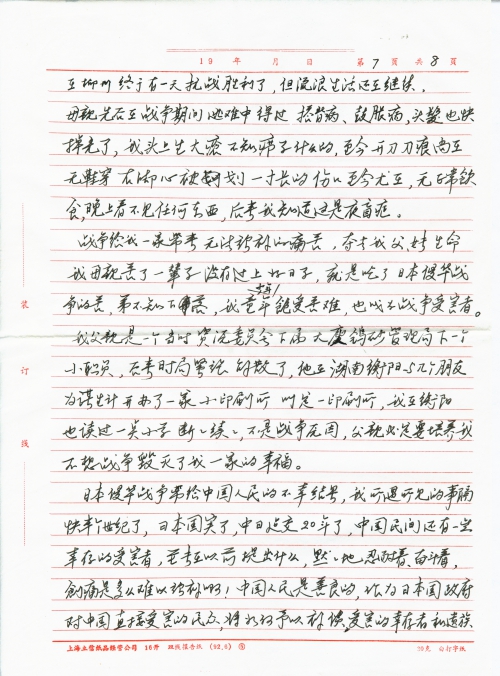 19 年 月 日 第7页共8页
在柳州终于有一天抗战胜利了，但流浪生活还在继续。
母亲先后在战争期间逃难中得过 摆背病、鼓胀病，头发也快
掉光了，我头上生大疮不知疖子什么的，至今开刀刀痕尚在
无鞋穿 右脚心被划一寸长的伤口至今尤在，无正常饮
食，晚上看不见任何东西，后来我知道这是夜盲症。
战争给我一家带来无法弥补的痛苦，夺去我父、姐生命
我母亲苦了一辈子没有过上好日子，就是吃了日本侵华战
争的苦，弟不知下落，我童年饱受苦难，也成了战争受害者。
我父亲是一个当时资源委员会下属大庾钨矿管理局下一个
小职员，后来时局 解散了，他在湖南衡阳与几个朋友
为谋生计开办了一家小印刷所 叫 一印刷所，我在衡阳
也读过一点小学断断续续，不是战争死因，父亲必定要培养我
不想战争毁灭了我一家的幸福。
日本侵华战争带给中国人民的不幸结果，我所遇所见的事隔
快半个世纪了，日本国富了，中日建交20年了，中国民间还有一定
幸存的受害者，至老在以前没提出什么，默默地忍耐着、奋斗着，
创痛是多么难以弥补啊！中国人民是善良的，认为日本国政府
对中国直接受害的民众，将 予以补偿，受害的幸存者和遗族
装
订
线
上海立信纸品经营公司 16开 双线报告纸 (92.6) ⑤ 70克 白打字纸